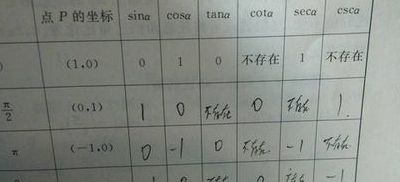 点 P 的坐标 sinα cosα tanα cotα secα cscα
(1,0) 0 1 0 不存在 1 不存在
π/2 (0,1) 1 0 不存在 0 不存在 1
π (-1,0) 0 -1 0 不存在 -1 不存在